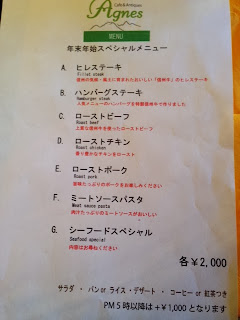 Café & Antiques
Agnes
MENU
年末年始スペシャルメニュー
A. ヒレステーキ
Fillet steak
信州の気候・風土に育まれたおいしい「信州牛」のヒレステーキ
B. ハンバーグステーキ
Hamburger steak
人気メニューのハンバーグを特選信州牛で作りました
C. ローストビーフ
Roast beef
上質な信州牛を使ったローストビーフ
D. ローストチキン
Roast chicken
香り豊かなチキンをロースト
E. ローストポーク
Roast pork
旨味たっぷりのポークをお楽しみください
F. ミートソースパスタ
Meat sauce pasta
肉汁たっぷりのミートソースがおいしい
G. シーフードスペシャル
Seafood special
内容はお尋ねください
各¥2,000
サラダ ・ パン or ライス ・ デザート ・ コーヒー or 紅茶つき
PM5時以降は+¥1,000となります